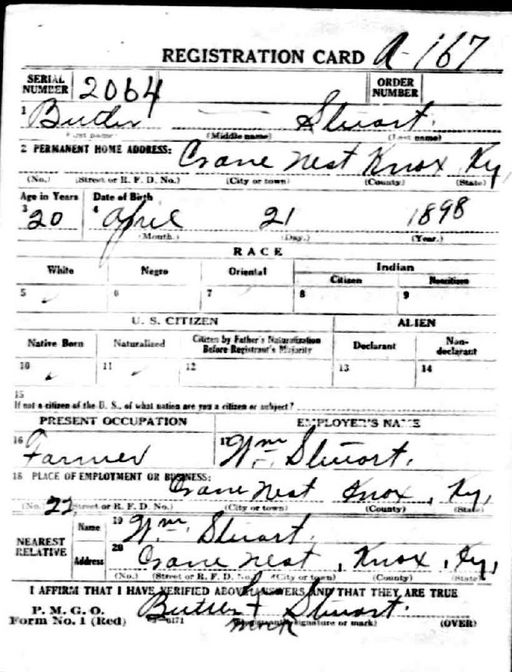 REGISTRATION CARD A-167
SERIAL NUMBER 2064 ORDER NUMBER
1 Butler — Stuart.
(First name) (Middle name) (Last name)
2 PERMANENT HOME ADDRESS: Crane Nest Knox Ky,
(No.) (Street or R. F. D. No.) (City or town) (County) (State)
Age in Years Date of Birth
3 20 4 April 21 1898
(Month.) (Day.) (Year.)
RACE
White Negro Oriental Indian
Citizen Noncitizen
5 ✓ 6 7 8 9
U. S. CITIZEN ALIEN
Native Born Naturalized Citizen by Father's Naturalization Before Registrant's Majority Declarant Non-declarant
10 ✓ 11 ✓ 12 13 14
15
If not a citizen of the U. S., of what nation are you a citizen or subject?
PRESENT OCCUPATION EMPLOYER'S NAME
16 Farmer 17 Wm Stuart.
18 PLACE OF EMPLOYMENT OR BUSINESS:
Crane Nest Knox, Ky,
(No.) 22 (Street or R. F. D. No.) (City or town) (County) (State)
NEAREST RELATIVE Name 19 Wm Stuart.
Address 20 Crane Nest, Knox, Ky,
(No.) (Street or R. F. D. No.) (City or town) (County) (State)
I AFFIRM THAT I HAVE VERIFIED ABOVE ANSWERS AND THAT THEY ARE TRUE
P. M. G. O.
Form No. 1 (Red) Butler + Stuart.
mark (Registrant's signature or mark) (OVER)